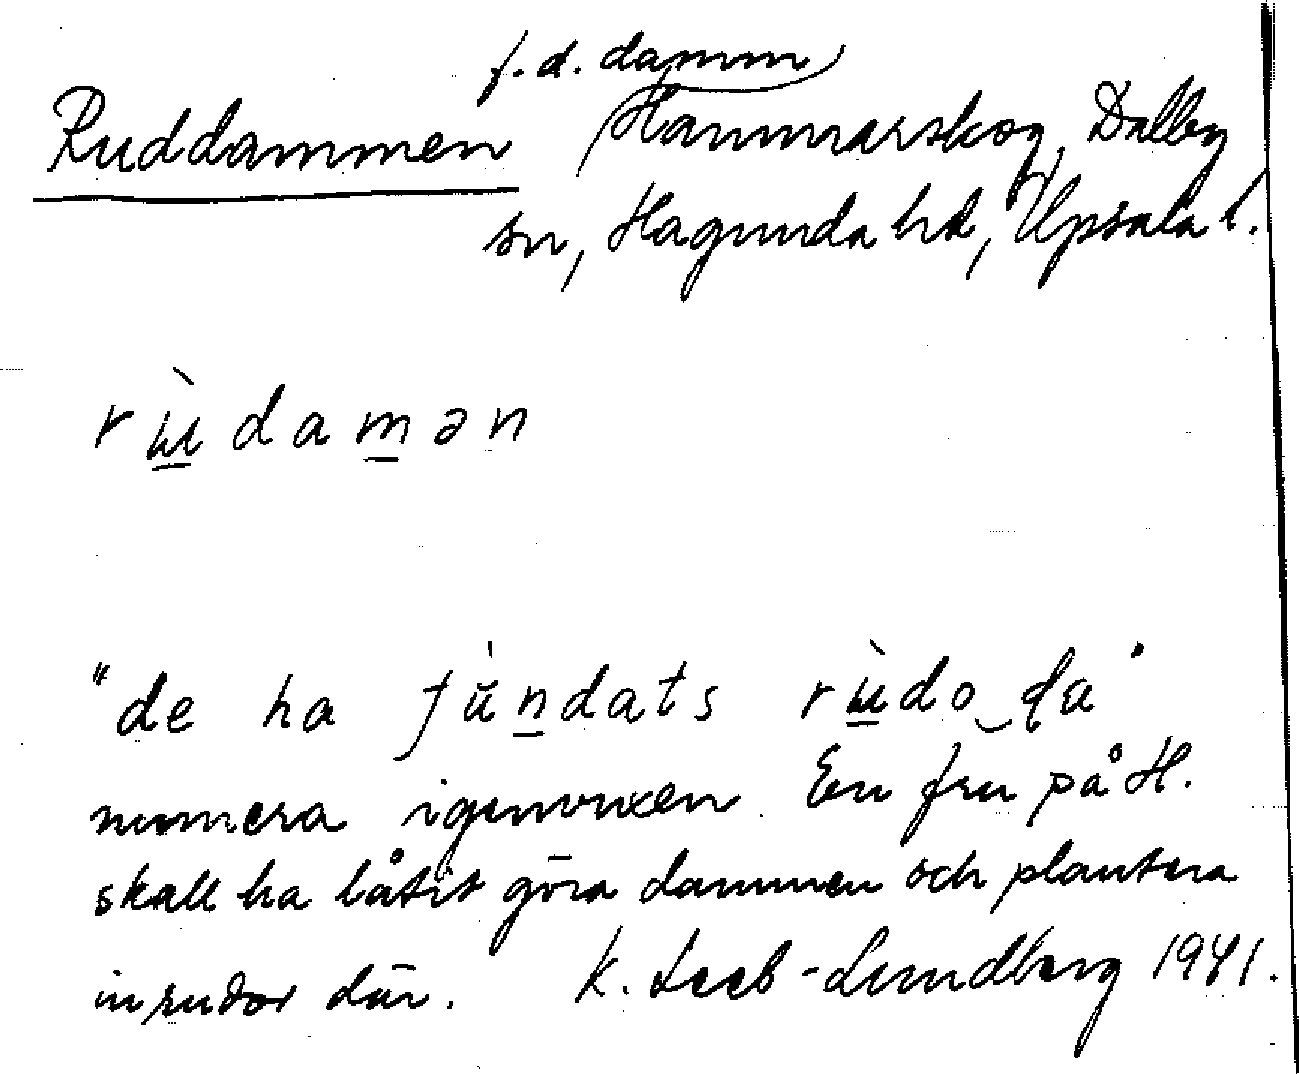 f. d. damm
Ruddammen Hammarskog, Dalby
sn, Hagunda hd, Upsala l.
rɯ̀damən
"de ha fŭ̀ndats rɯ̀do då"
numera igenvuxen. En fru på H.
skall ha låtit göra dammen och plantera
in rudor där. K. Leeb-Lundberg 1941.